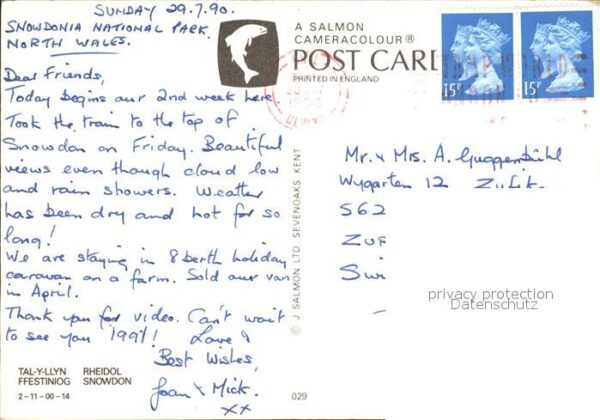 SUNDAY 29.7.90.
SNOWDONIA NATIONAL PARK,
NORTH WALES.
Dear Friends,
Today begins our 2nd week here.
Took the train to the top of
Snowdon on Friday. Beautiful
views even though cloud low
and rain showers. Weather
has been dry and hot for so
long!
We are staying in 8 berth holiday
caravan on a farm. Sold our van
in April.
Thank you for video. Can't wait
to see you 1991! Love &
Best Wishes,
Joan & Mick.
xx
TAL-Y-LLYN RHEIDOL
FFESTINIOG SNOWDON
2-11-00-14
029
© J SALMON LTD SEVENOAKS KENT
A SALMON
CAMERACOLOUR®
POST CARD
PRINTED IN ENGLAND
CLWYD
15P
15P
Mr. & Mrs. A. Guggenbühl
Wygarten 12
562
ZUF
Swi
privacy protection
Datenschutz